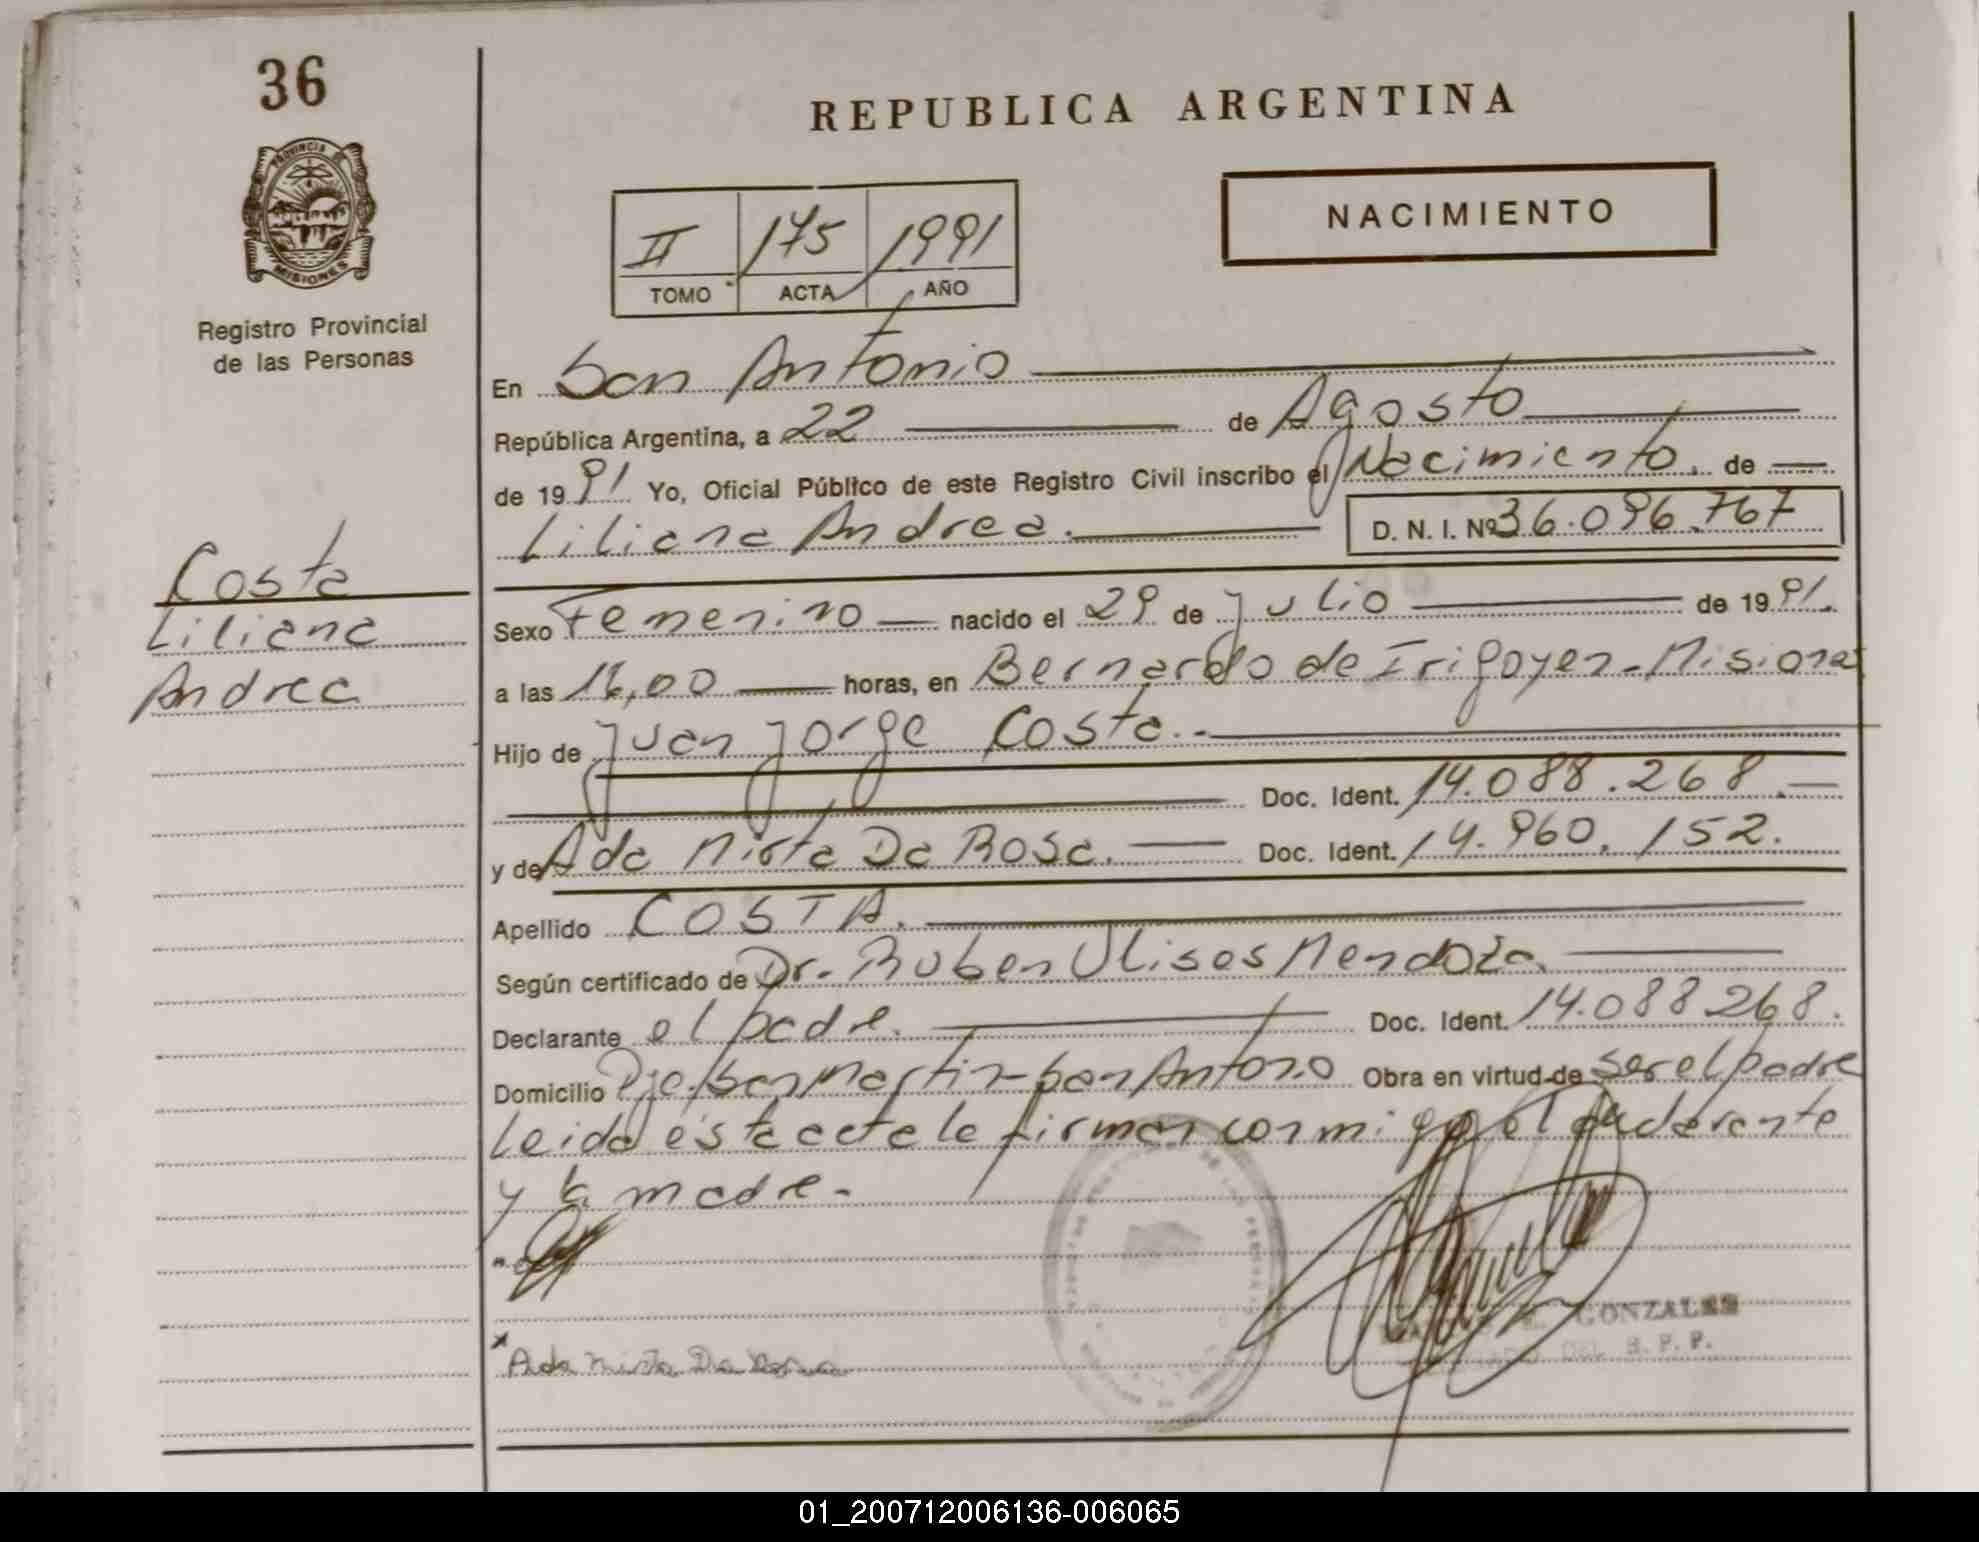 36
PROVINCIA DE
MISIONES
Registro Provincial
de las Personas
Costa
Liliana
Andrea
REPUBLICA ARGENTINA
NACIMIENTO
II 175 1991
TOMO ACTA AÑO
En San Antonio
República Argentina, a 22 de Agosto
de 1991 Yo, Oficial Público de este Registro Civil inscribo el Nacimiento. de
Liliana Andrea. D. N. I. Nº 36.096.767
Sexo Femenino nacido el 29 de Julio de 1991.
a las 16,00 horas, en Bernardo de Irigoyen - Misiones
Hijo de Juan Jorge Costa.
Doc. Ident. 14.088.268.
y de Ada Mirta Da Rosa. Doc. Ident. 14.960.152.
Apellido COSTA.
Según certificado de Dr. Ruben Ulises Mendoza.
Declarante el padre. Doc. Ident. 14.088268.
Domicilio Pje. San Martin - San Antonio Obra en virtud de ser el padre
Leida esta acta la firman conmigo el declarante
y la madre.
Ada Mirta Da Rosa
GONZALES
DEL R. P. P.
01_200712006136-006065